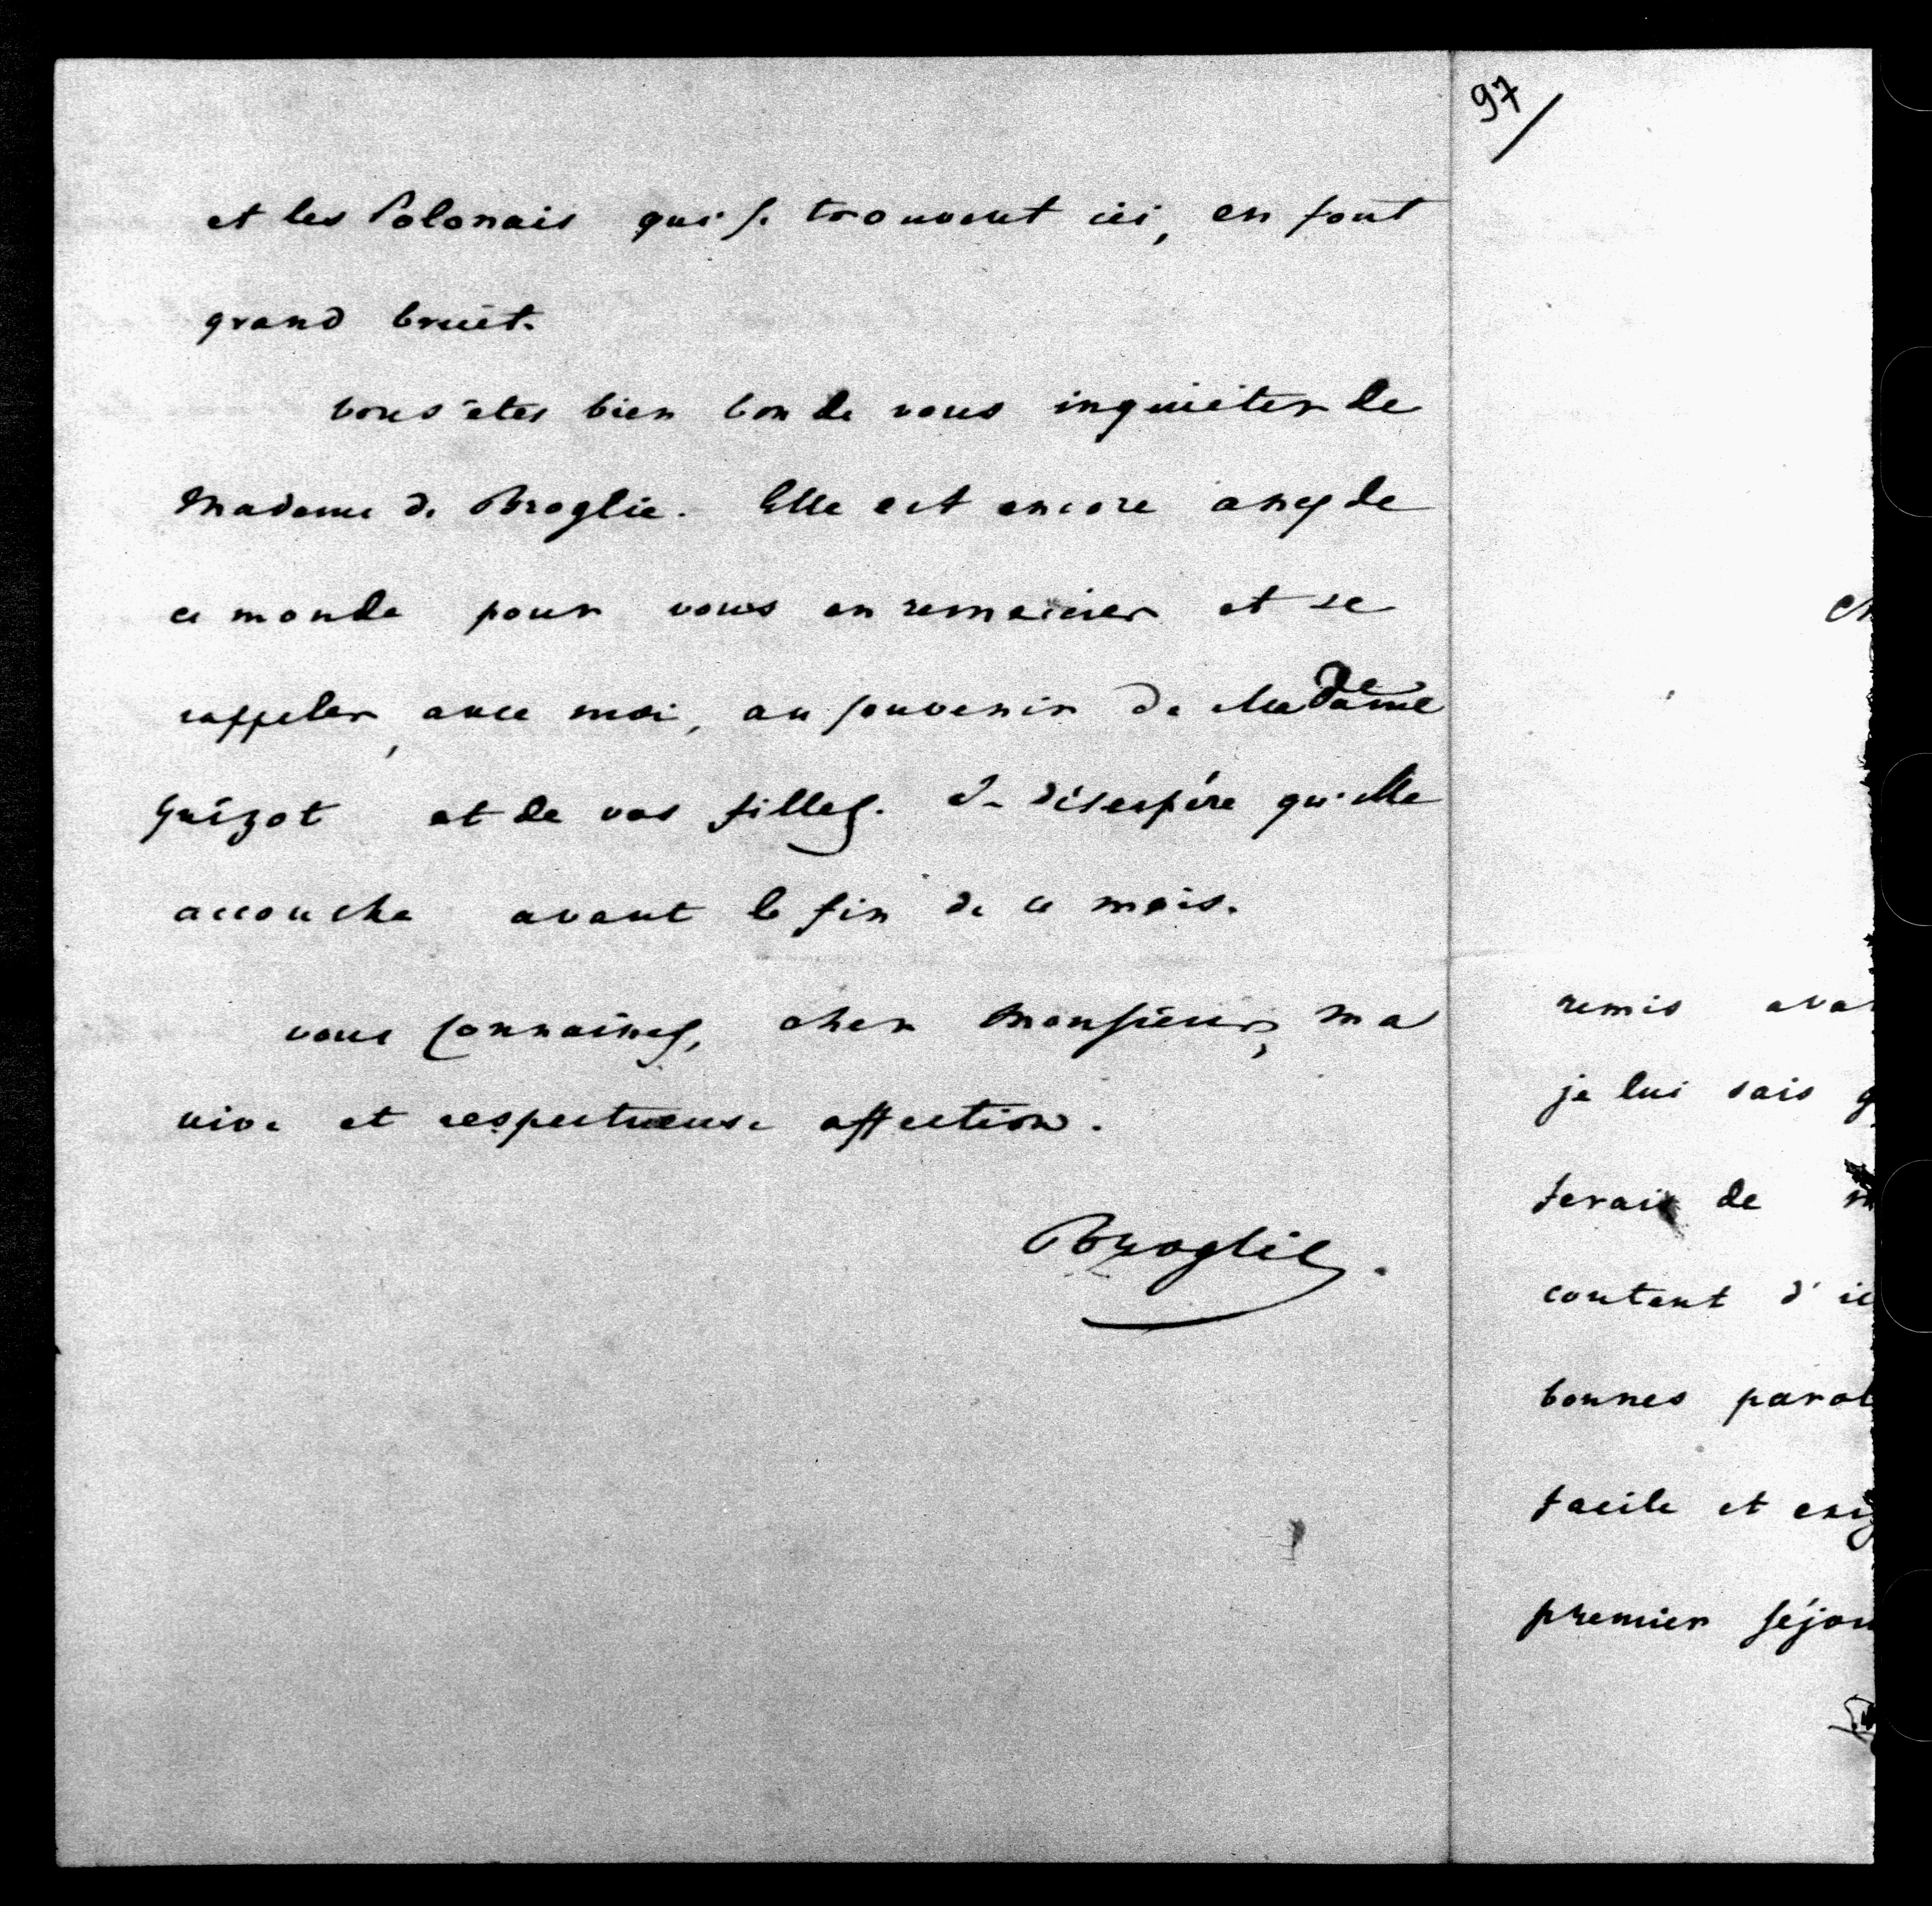 et les Polonais qui se trouvent ici, en font
grand bruit.
vous êtes bien bon de vous inquiéter de
Madame de Broglie. Elle est encore assez de
ce monde pour vous en remercier et se
rappeler, avec moi, au souvenir de Madame
Guizot et de vos filles. Je désespère qu'elle
accouche avant la fin de ce mois.
vous connaissez, cher Monsieur, ma
vive et respectueuse affection.
Broglie.
97
remis
je lui sais
ferait de
content d'
bonnes
facile et
premier